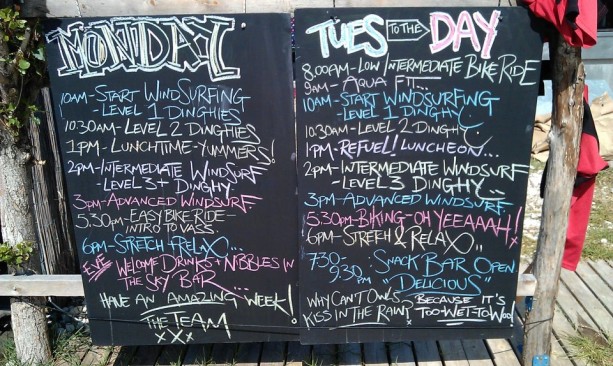 MONDAY
10AM-START WINDSURFING
-LEVEL 1 DINGHIES
10.30AM-LEVEL 2 DINGHIES
1PM-LUNCHTIME-YUMMERS!
2PM-INTERMEDIATE WINDSURF
-LEVEL 3+ DINGHY
3PM-ADVANCED WINDSURF
5.30PM-EASY BIKE RIDE-
INTRO TO VASS.
6PM-STRETCH+RELAX...
EVE WELCOME DRINKS+NIBBLES IN
THE SKY BAR...
HAVE AN AMAZING WEEK!
THE TEAM
xxx
TUES TO THE DAY
8.00AM-LOW INTERMEDIATE BIKE RIDE
9AM-AQUA FIT...
10AM-START WINDSURFING
-LEVEL 1 DINGHY.
10.30AM-LEVEL 2 DINGHY.
1PM-REFUEL! LUNCHEON...
2PM-INTERMEDIATE WINDSURF
-LEVEL 3 DINGHY..
3PM-ADVANCED WINDSURF.
5.30PM-BIKING-OH YEEAAAH!
6PM-STRETCH & RELAX..
7.30-
9.30PM SNACK BAR OPEN
"DELICIOUS"
WHY CAN'T OWLS KISS IN THE RAIN?
BECAUSE IT'S TOO-WET-TO-WOO!